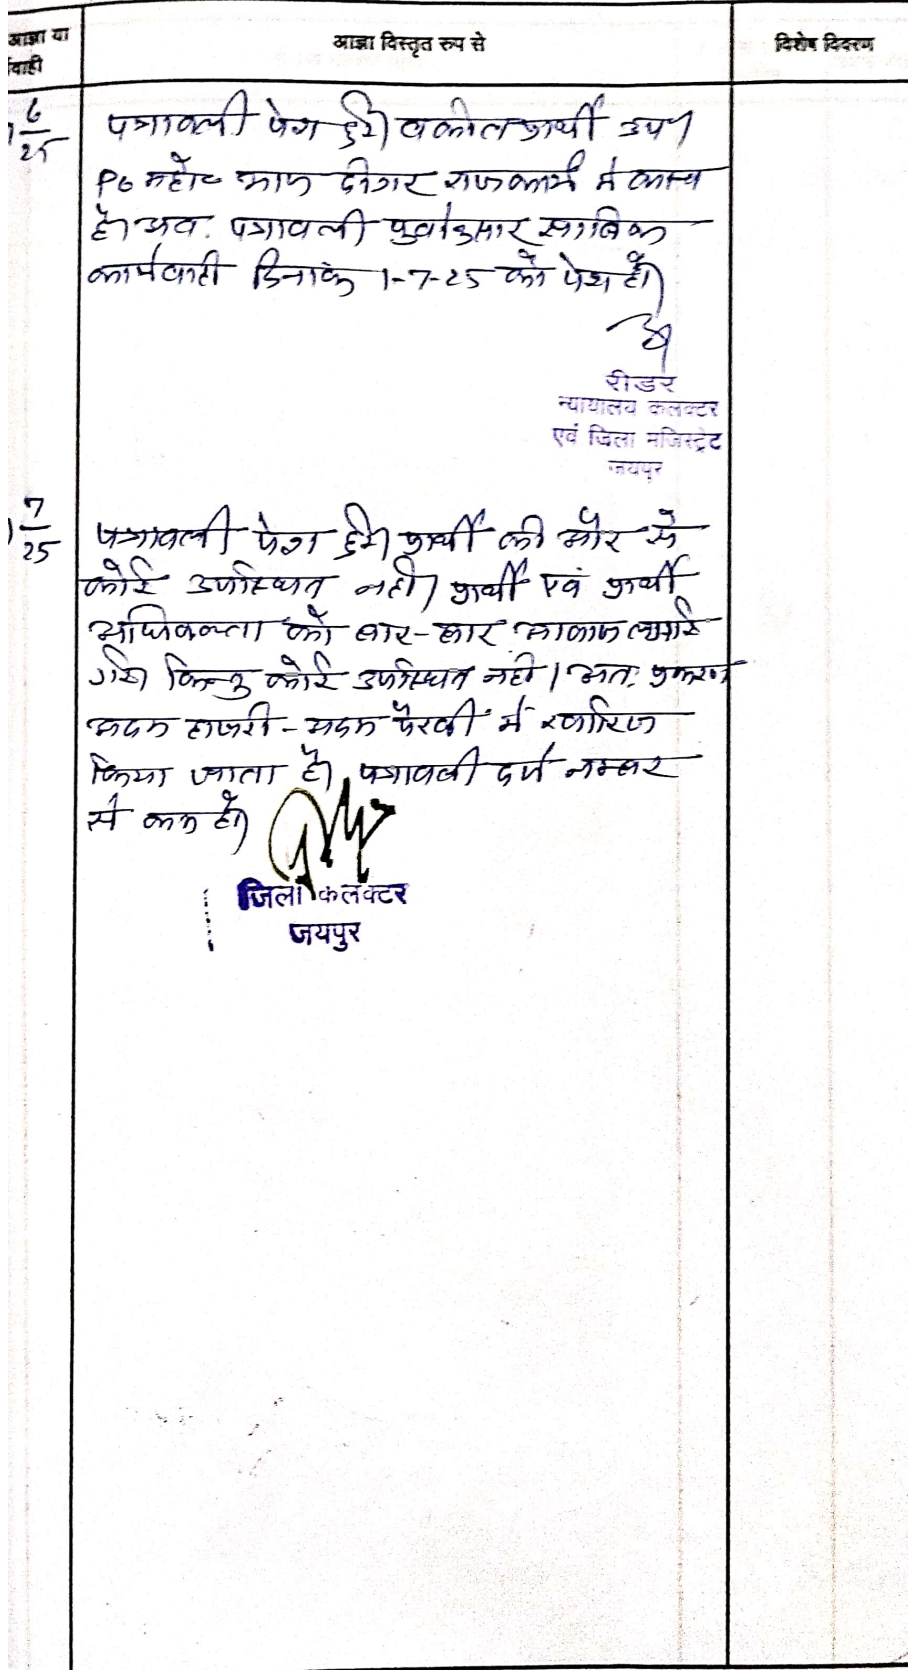 आज्ञा या
र्यवाही
आज्ञा विस्तृत रुप से
विशेष विवरण
6/25
पत्रावली पेश हुई। वकील प्रार्थी उप।
PO महोदय आज दीगर राजकार्य में व्यस्त
है। अतः पत्रावली पुर्वानुसार साबिक
कार्यवाही दिनांक 1-7-25 को पेश हो।
रीडर
न्यायालय कलक्टर
एवं जिला मजिस्ट्रेट
जयपुर
7/25
पत्रावली पेश हुई। प्रार्थी की ओर से
कोई उपस्थित नही। प्रार्थी एवं प्रार्थी
अधिवक्ता को बार-बार आवाज लगाई
गई। किन्तु कोई उपस्थित नही। अतः प्रकरण
अदम हाजरी-अदम पैरवी में खारिज
किया जाता है। पत्रावली दर्ज नम्बर
से कम हो।
जिला कलक्टर
जयपुर